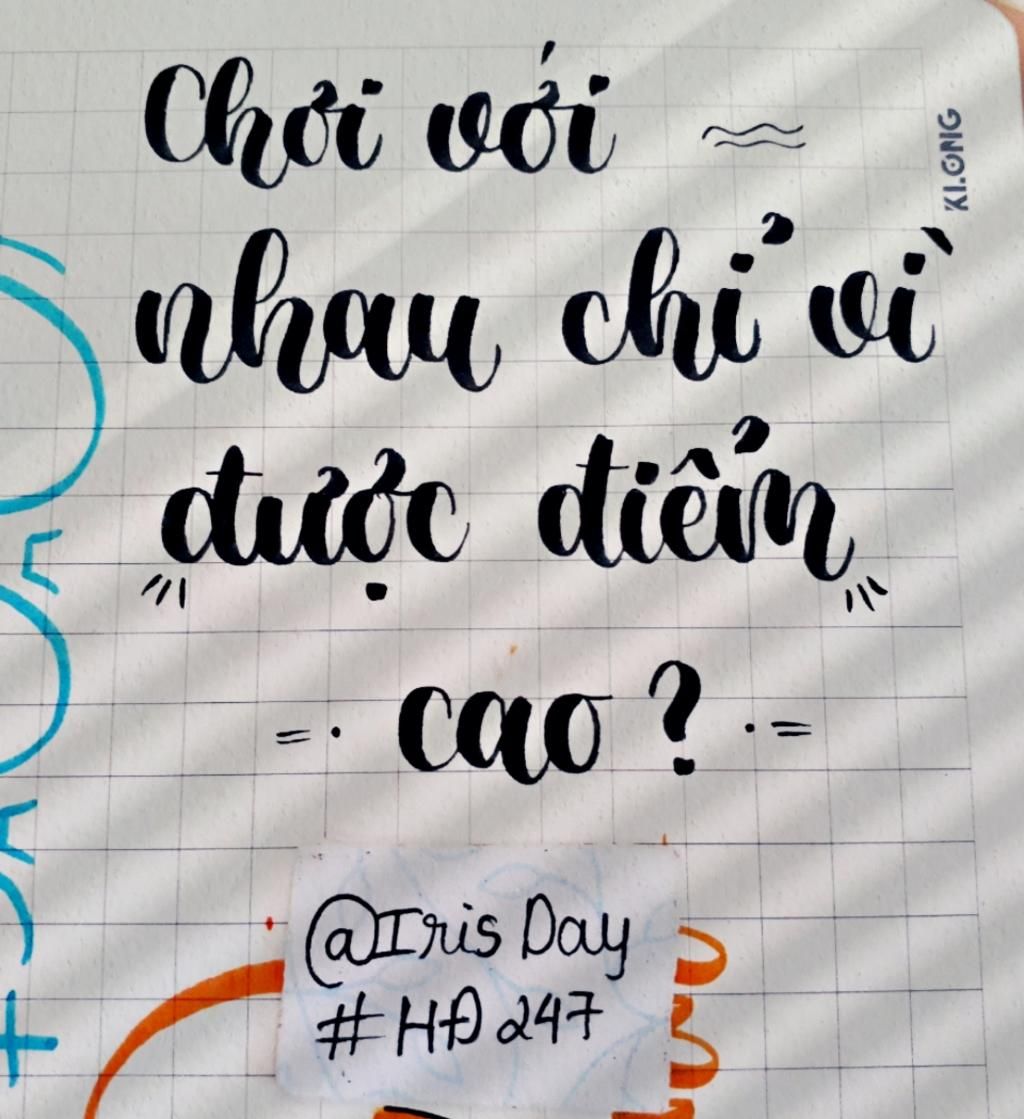 Chơi với
nhau chỉ vì
được điểm
cao?
KLONG
@Iris Day
#HĐ247